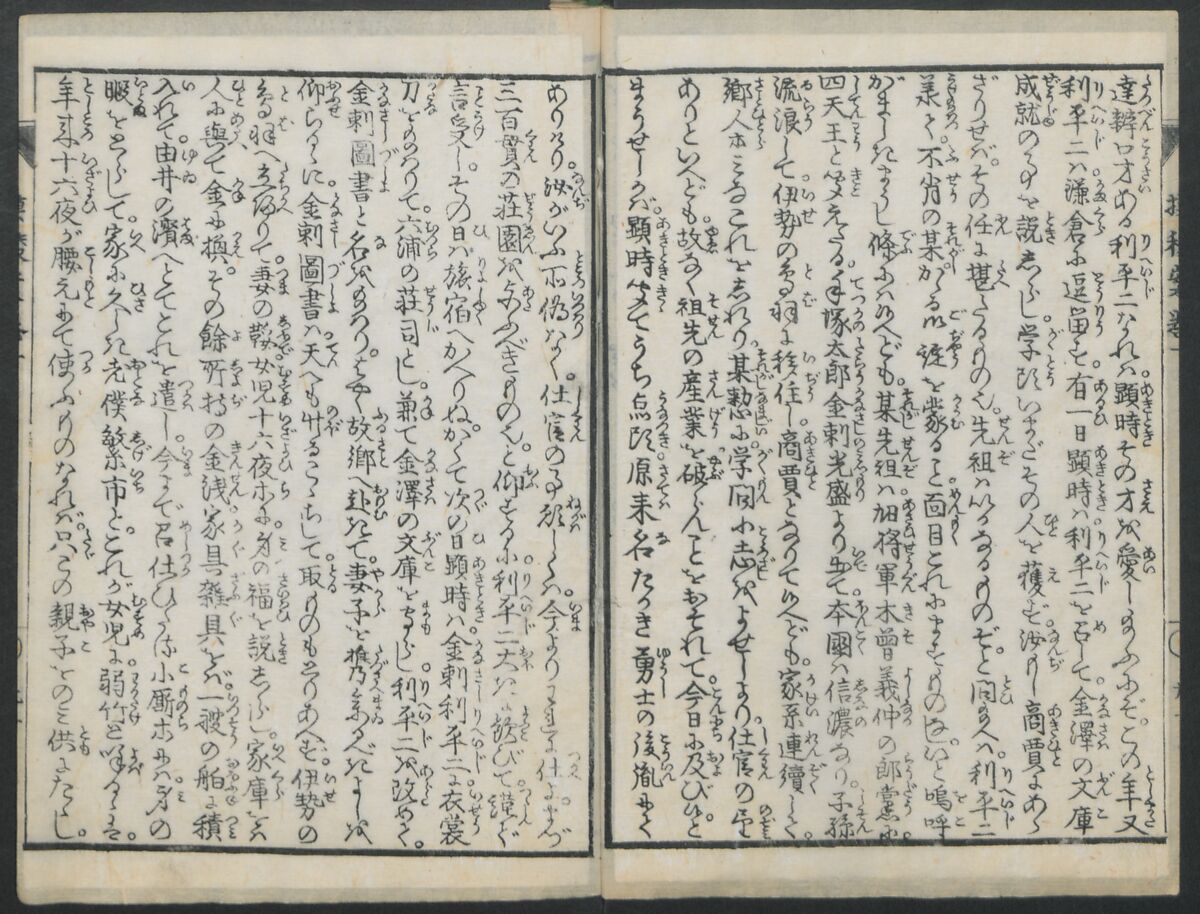 達辯口才ある利平二なれば顕時その才を愛し給ふにぞこの年又
利平二は鎌倉に逗留す有一日顕時は利平二を召して金澤の文庫
成就の事を説しらし学頭いまだその人を獲ず汝もし商賈にあら
ざりせばその任に堪たるものも先祖はいかなるものぞと問給へば利平二
莞く不肖の某かゝる御諚を蒙ること面目これにますものなしいと嗚呼
がましきまうし條に候へども某先祖は旭将軍木曽義仲の郎黨に
四天王と聞えたる手塚太郎金刺光盛より出て本國は信濃なり子孫
流浪して伊勢の鳥羽に移住し商賈となりて候へども家系連續して
郷人ホみなこれをしれり某懃に学問に志をよせしより仕官の望
ありといへども故なく祖先の産業を破らんことをおそれて今日に及びひと
まうせしかば顕時聞てうち点頭原来名たゝき勇士の後胤にて
ありけり汝がいふ所偽なく仕官の事願しくは今よりわれに仕よまづ
三百貫の荘園をあたふべきものをと仰するに利平二大に歓びて言下に
言受しその日は旅宿へかへりぬかくて次の日顕時は金刺利平二に衣裳
刀をたまはりて六浦の荘司とし兼て金澤の文庫を守らし利平二を改めて
金刺圖書と名をたまはりはやく故郷へ赴きて妻子を携参るべきよしを
仰らるゝに金刺圖書は天へも升るこゝちして取ものもとりあへず伊勢の
鳥羽へ立帰りて妻の鞍女児十六夜ホに身の福を説しらし家庫をば
人に與て金に換その餘所持の金浅家具雑具をば一艘の舶に積
入れて由井の濱へとてこれを遣し今まで召仕ひたる小厮ホには身の
暇をとらして家に久しき老僕繁市とこれが女児に弱竹と呼るゝは
年来十六夜が腰元にて使ふものなれば只この親子をのみ供にたてし